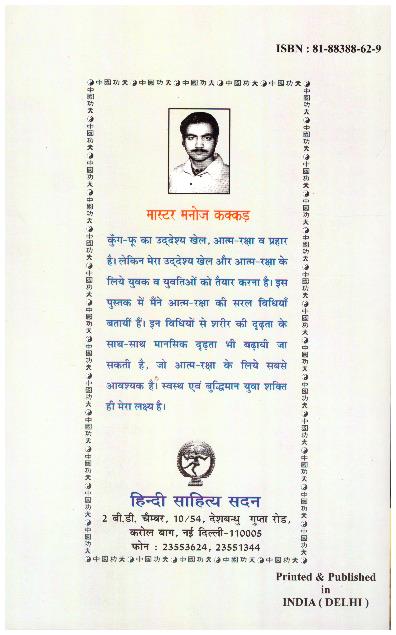 ISBN : 81-88388-62-9
中國功夫 中國功夫 中國功夫 中國功夫 中國功夫
मास्टर मनोज कक्कड़
कुँग-फू का उद्देश्य खेल, आत्म-रक्षा व प्रहार
है। लेकिन मेरा उद्देश्य खेल और आत्म-रक्षा के
लिये युवक व युवतिओं को तैयार करना है। इस
पुस्तक में मैंने आत्म-रक्षा की सरल विधियाँ
बतायीं हैं। इन विधियों से शरीर की दृढ़ता के
साथ-साथ मानसिक दृढ़ता भी बढ़ायी जा
सकती है, जो आत्म-रक्षा के लिये सबसे
आवश्यक है। स्वस्थ एवं बुद्धिमान युवा शक्ति
ही मेरा लक्ष्य है।
हिन्दी साहित्य सदन
2 बी.डी. चैम्बर, 10/54, देशबन्धु गुप्ता रोड,
करोल बाग, नई दिल्ली-110005
फोन : 23553624, 23551344
中國功夫 中國功夫 中國功夫 中國功夫 中國功夫
Printed & Published
in
INDIA ( DELHI )